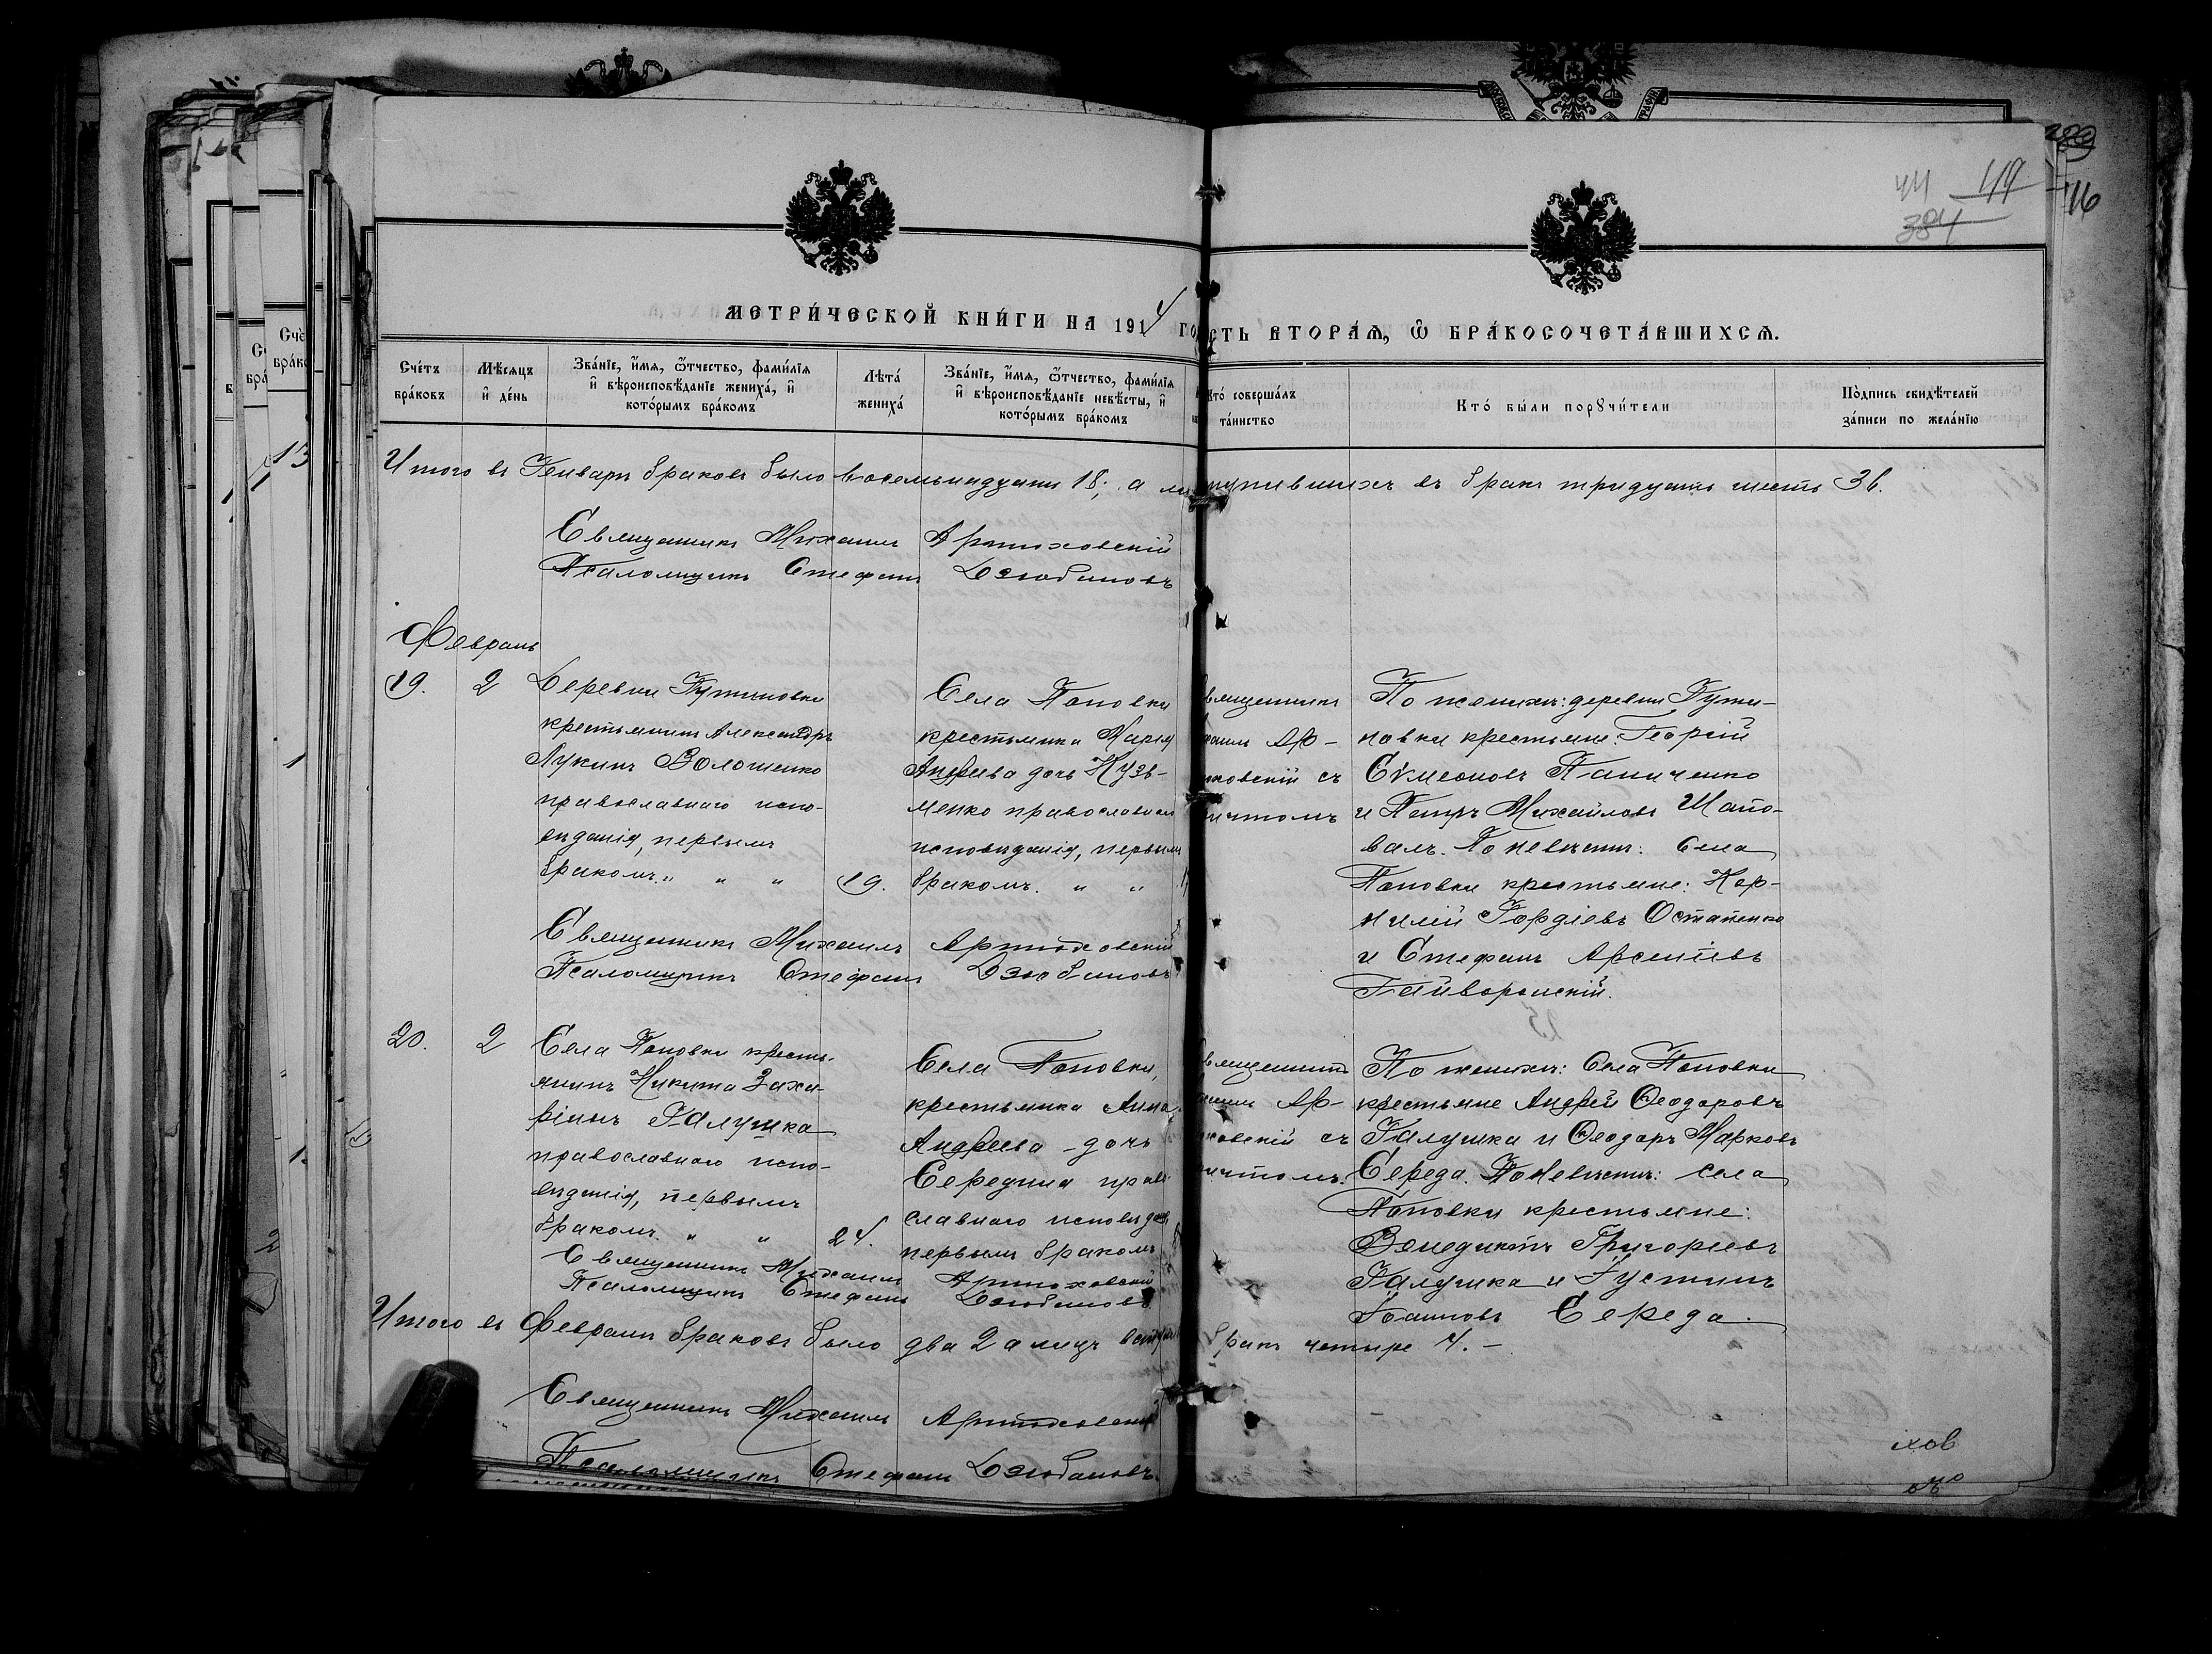 44 119
384
116
МЕТРИ́ЧЕСКОЙ КНИ́ГИ НА 1914 ГО
СТЬ ВТОРА́Ѧ, Ѽ БРА́КОСОЧЕТА́ВШИХСѦ.
Сче́тъ бра́ковъ
Мѣ́сѧцъ и҆ де́нь
Зва́нїе, и҆́мѧ, ѻ҆́тчество, фами́лїѧ и҆ вѣроисповѣ́данїе жениха̀, и҆ кото́рымъ бра́комъ
Лѣта̀ жениха̀
Зва́нїе, и҆́мѧ, ѻ҆́тчество, фами́лїѧ и҆ вѣроисповѣ́данїе невѣ́сты, и҆ кото́рымъ бра́комъ
Кто̀ соверша́лъ та́инство
Кто̀ бы́ли порꙋчи́тели
По́дпись свидѣ́телей за́писи по жела́нїю
Итого въ Генварѣ браковъ было восемьнадцать 18, а ли
тупившихъ въ бракъ тридцать шесть 36.
Священникъ Михаилъ Артюховскій
Псаломщикъ Стефанъ Дзюбановъ
Февраль
19. 2
Деревни Гутиновки
крестьянинъ Александръ
Лукинъ Волошенко
православнаго испо-
вѣданія, первымъ
бракомъ. " " " 19.
Села Поповки
крестьянка Марія
Андреева дочь Кузь-
менко православнаго
исповѣданія, первымъ
бракомъ. " "
вященникъ
хаилъ Ар-
юховскій съ
ичтомъ
По женихѣ: деревни Гути-
новки крестьяне: Георгій
Сѵмеоновъ Паниченко
и Петръ Михайловъ Шапо-
валъ. По невѣстѣ: села
Поповки крестьяне: Кор-
нилій Гордіевъ Остапенко
и Стефанъ Арсеніевъ
Гайворонскій.
Священникъ Михаилъ Артюховскій
Псаломщикъ Стефанъ Дзюбановъ
20. 2
Села Поповки кресть-
янинъ Никита Заха-
ріинъ Галушка
православнаго испо-
вѣданія, первымъ
бракомъ. " " 24.
Села Поповки,
крестьянка Анна
Андреева дочь
Середина право
славнаго исповѣдан
первымъ бракомъ
вященникъ
хаилъ Ар-
юховскій съ
ичтомъ.
По женихѣ: Села Поповки
крестьяне Андрей Ѳеодоровъ
Галушка и Ѳеодоръ Марковъ
Середа. По невѣстѣ: села
Поповки крестьяне:
Венедиктъ Григорьевъ
Галушка и Іустинъ
Іоанновъ Середа.
Священникъ Михаилъ Артюховскій
Псаломщикъ Стефанъ Дзюбановъ
Итого въ Февралѣ браковъ было два 2 а лицъ вступи
бракъ четыре 4. –
Священникъ Михаилъ Артюховскій
Псаломщикъ Стефанъ Дзюбановъ.
іхов